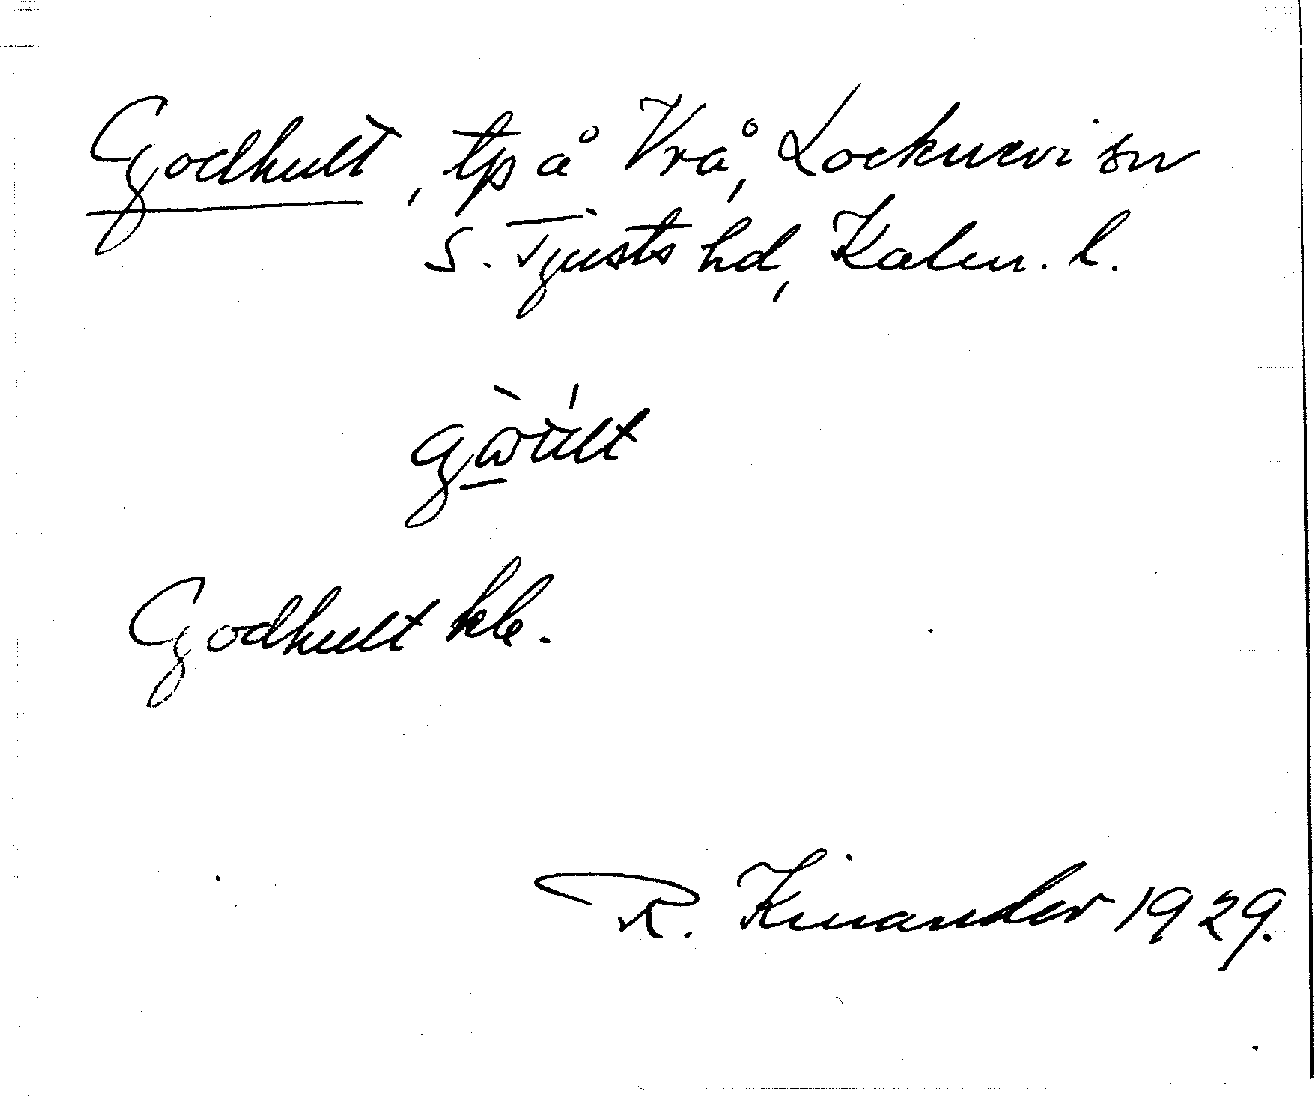 Godhult, tp å Vrå, Locknevi sn
S. Tjusts hd, Kalm. l.
gὼ̲últ
Godhult kle.
R. Kinander 1929.